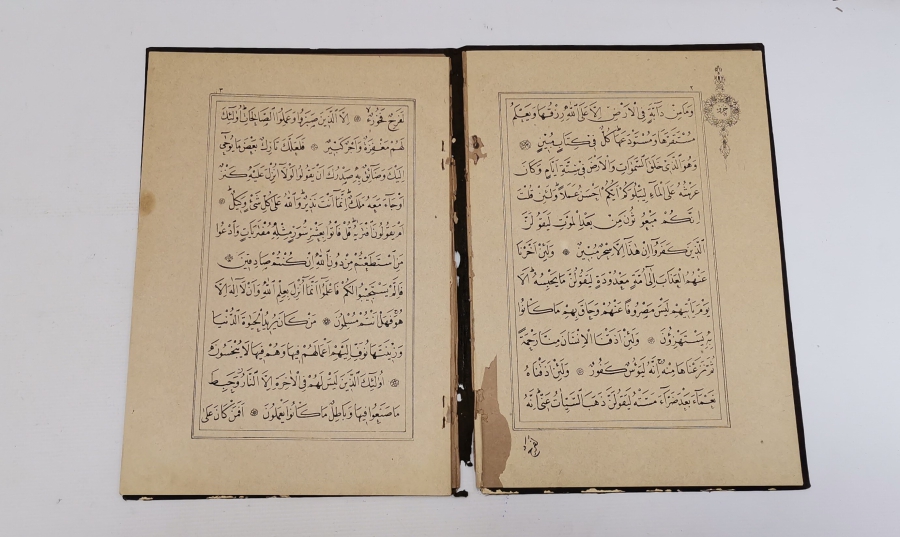 ٢
وَمَا مِنْ دَابَّةٍ فِي الْاَرْضِ اِلَّا عَلَى اللّٰهِ رِزْقُهَا وَيَعْلَمُ
مُسْتَقَرَّهَا وَمُسْتَوْدَعَهَا كُلٌّ فِي كِتَابٍ مُبِينٍ
وَهُوَ الَّذِي خَلَقَ السَّمٰوَاتِ وَالْاَرْضَ فِي سِتَّةِ اَيَّامٍ وَكَانَ
عَرْشُهُ عَلَى الْمَاءِ لِيَبْلُوَكُمْ اَيُّكُمْ اَحْسَنُ عَمَلًا وَلَئِنْ قُلْتَ
اِنَّكُمْ مَبْعُوثُونَ مِنْ بَعْدِ الْمَوْتِ لَيَقُولَنَّ
الَّذِينَ كَفَرُوا اِنْ هٰذَا اِلَّا سِحْرٌ مُبِينٌ وَلَئِنْ اَخَّرْنَا
عَنْهُمُ الْعَذَابَ اِلٰى اُمَّةٍ مَعْدُودَةٍ لَيَقُولُنَّ مَا يَحْبِسُهُ اَلَا
يَوْمَ يَاْتِيهِمْ لَيْسَ مَصْرُوفًا عَنْهُمْ وَحَاقَ بِهِمْ مَا كَانُوا
بِهِ يَسْتَهْزِؤُنَ وَلَئِنْ اَذَقْنَا الْاِنْسَانَ مِنَّا رَحْمَةً
ثُمَّ نَزَعْنَاهَا مِنْهُ اِنَّهُ لَيَؤُسٌ كَفُورٌ وَلَئِنْ اَذَقْنَاهُ
نَعْمَاءَ بَعْدَ ضَرَّاءَ مَسَّتْهُ لَيَقُولَنَّ ذَهَبَ السَّيِّئَاتُ عَنِّي اِنَّهُ
٣
لَفَرِحٌ فَخُورٌ اِلَّا الَّذِينَ صَبَرُوا وَعَمِلُوا الصَّالِحَاتِ اُولٰئِكَ
لَهُمْ مَغْفِرَةٌ وَاَجْرٌ كَبِيرٌ فَلَعَلَّكَ تَارِكٌ بَعْضَ مَا يُوحٰى
اِلَيْكَ وَضَائِقٌ بِهِ صَدْرُكَ اَنْ يَقُولُوا لَوْلَا اُنْزِلَ عَلَيْهِ كَنْزٌ
اَوْ جَاءَ مَعَهُ مَلَكٌ اِنَّمَا اَنْتَ نَذِيرٌ وَاللّٰهُ عَلٰى كُلِّ شَيْءٍ وَكِيلٌ
اَمْ يَقُولُونَ افْتَرٰيهُ قُلْ فَاْتُوا بِعَشْرِ سُوَرٍ مِثْلِهِ مُفْتَرَيَاتٍ وَادْعُوا
مَنِ اسْتَطَعْتُمْ مِنْ دُونِ اللّٰهِ اِنْ كُنْتُمْ صَادِقِينَ
فَاِلَّمْ يَسْتَجِيبُوا لَكُمْ فَاعْلَمُوا اَنَّمَا اُنْزِلَ بِعِلْمِ اللّٰهِ وَاَنْ لَا اِلٰهَ اِلَّا
هُوَ فَهَلْ اَنْتُمْ مُسْلِمُونَ مَنْ كَانَ يُرِيدُ الْحَيٰوةَ الدُّنْيَا
وَزِينَتَهَا نُوَفِّ اِلَيْهِمْ اَعْمَالَهُمْ فِيهَا وَهُمْ فِيهَا لَا يُبْخَسُونَ
اُولٰئِكَ الَّذِينَ لَيْسَ لَهُمْ فِي الْاٰخِرَةِ اِلَّا النَّارُ وَحَبِطَ
مَا صَنَعُوا فِيهَا وَبَاطِلٌ مَا كَانُوا يَعْمَلُونَ اَفَمَنْ كَانَ عَلٰى